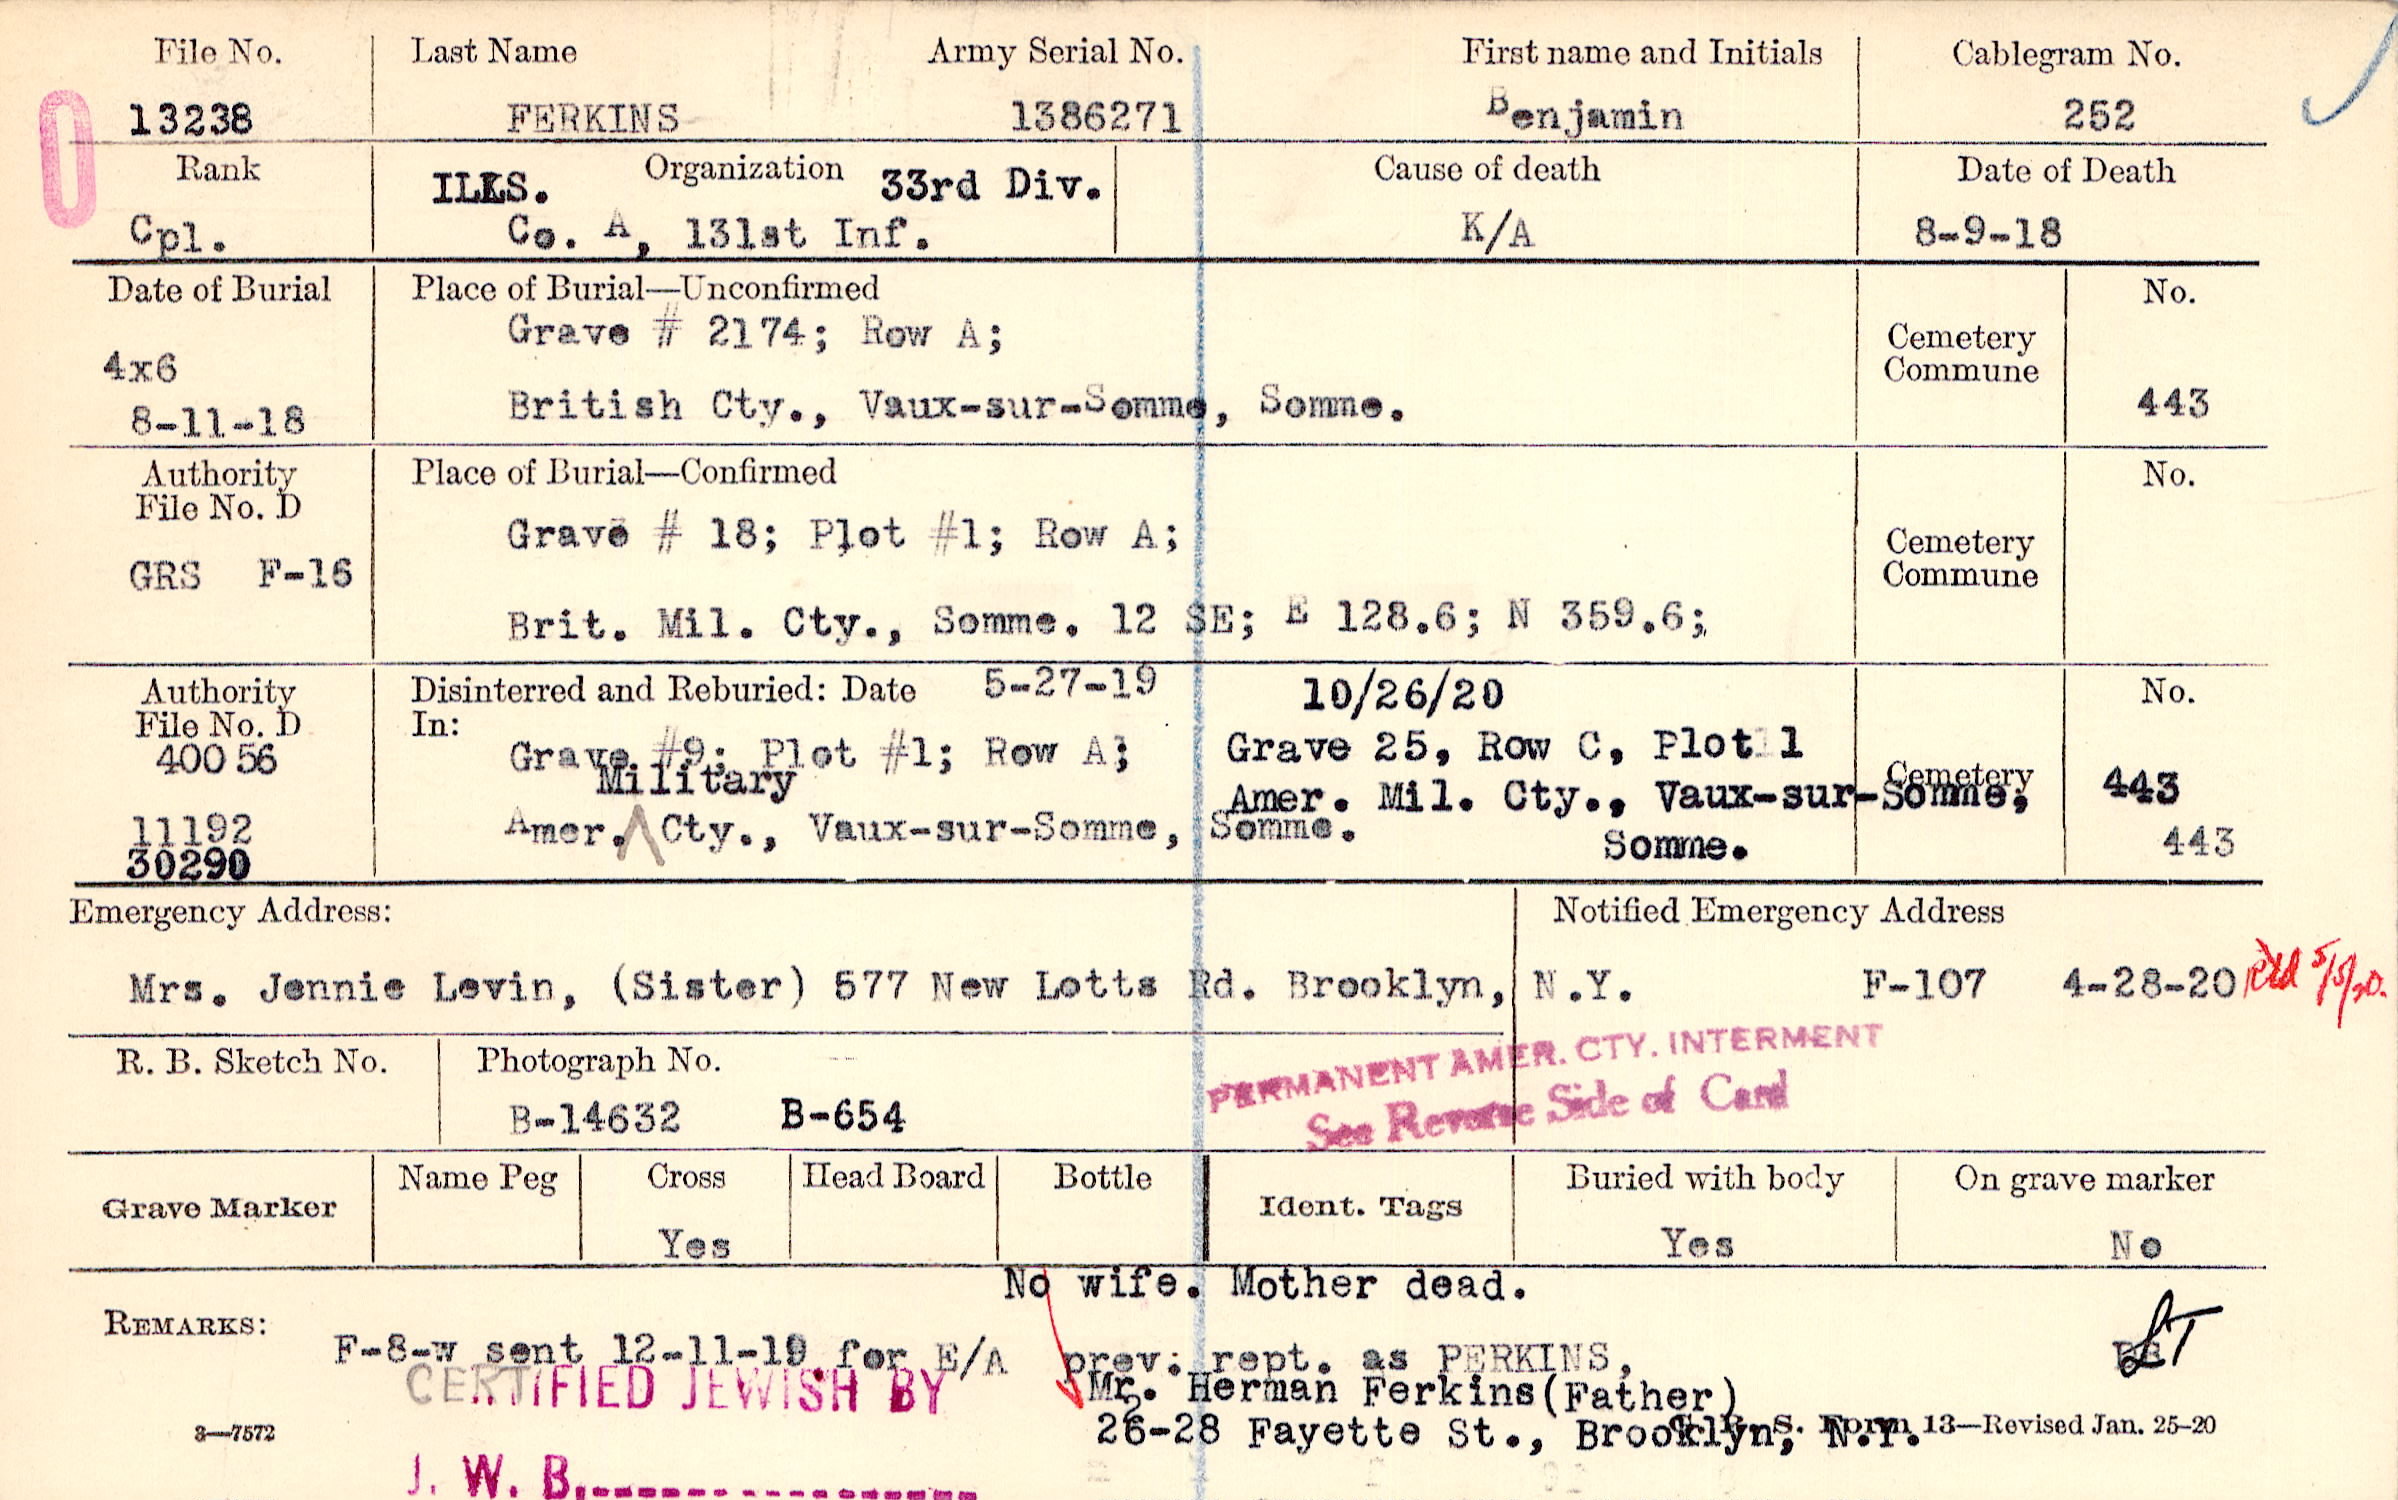 File No. Last Name Army Serial No. First name and Initials Cablegram No.
13238 FERKINS 1386271 Benjamin 252
Rank Organization Cause of death Date of Death
ILLS. 33rd Div.
Cpl. Co. A, 131st Inf. K/A 8-9-18
Date of Burial Place of Burial—Unconfirmed No.
Grave # 2174; Row A;
Cemetery
Commune
4x6
8-11-18 British Cty., Vaux-sur-Somme, Somme. 443
Authority Place of Burial—Confirmed No.
File No. D
Grave # 18; Plot #1; Row A;
Cemetery
Commune
GRS F-16
Brit. Mil. Cty., Somme. 12 SE; E 128.6; N 359.6;
Authority Disinterred and Reburied: Date 5-27-19 10/26/20 No.
File No. D In:
400 56 Grave #9; Plot #1; Row A; Grave 25, Row C, Plot 1
Military
Amer. Mil. Cty., Vaux-sur-Somme, Cemetery 443
11192 Amer. Cty., Vaux-sur-Somme, Somme.
Somme. 443
30290
Emergency Address: Notified Emergency Address
Mrs. Jennie Levin, (Sister) 577 New Lotts Rd. Brooklyn, N.Y. F-107 4-28-20 5/5/20.
R. B. Sketch No. Photograph No.
PERMANENT AMER. CTY. INTERMENT
See Reverse Side of Card
B-14632 B-654
Grave Marker Name Peg Cross Head Board Bottle Ident. Tags Buried with body On grave marker
Yes Yes No
No wife. Mother dead.
REMARKS:
F-8-w sent 12-11-19 for E/A prev. rept. as PERKINS, LT
CERTIFIED JEWISH BY Mr. Herman Ferkins(Father)
26-28 Fayette St., Brooklyn, N.Y.
3—7572 G. R. S. Form 13—Revised Jan. 25-20
J. W. B.